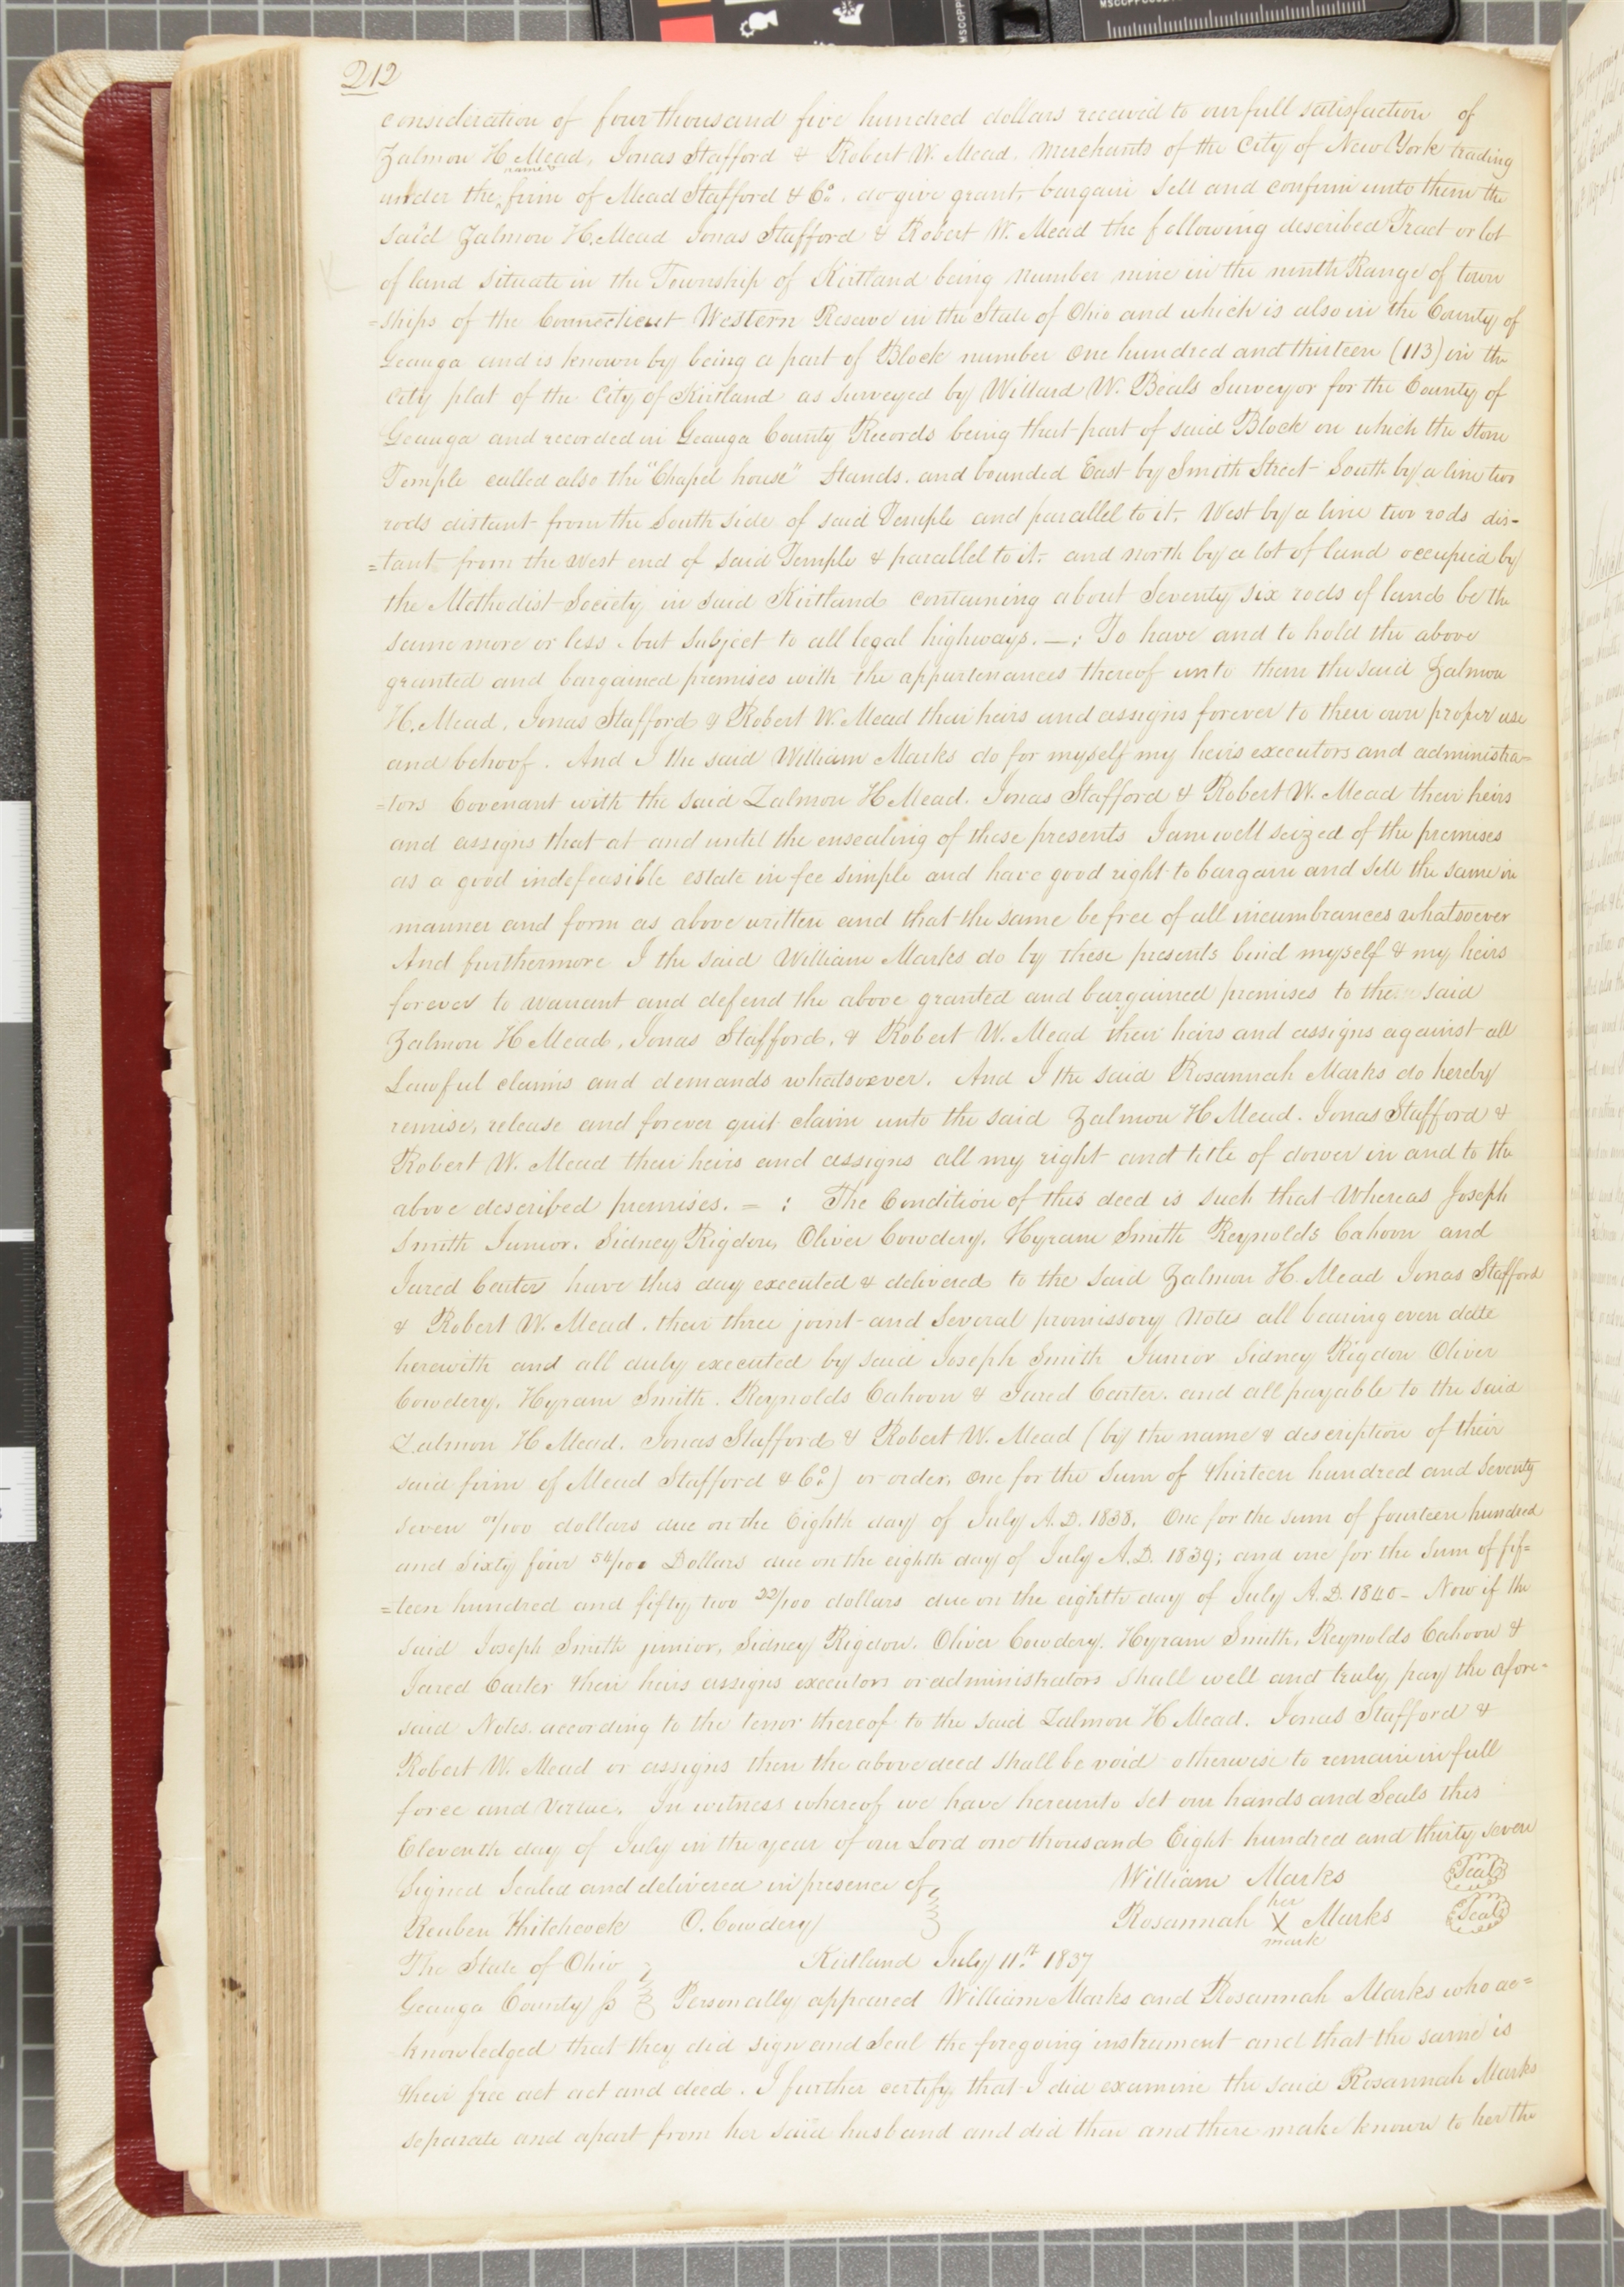 212
consideration of four thousand five hundred dollars received to our full satisfaction of
Zalmon H. Mead, Jonas Stafford & Robert W. Mead, Merchants of the City of New York trading
name &
under the firm of Mead Stafford & Co. do give grant, bargain sell and confirm unto them the
said Zalmon H. Mead Jonas Stafford & Robert W. Mead the following described Tract or lot
of land situate in the Township of Kirtland being number nine in the ninth Range of town
=ships of the Connecticut Western Reserve in the State of Ohio and which is also in the County of
Geauga and is known by being a part of Block number one hundred and thirteen (113) in the
City plat of the City of Kirtland as surveyed by Willard W. Beals Surveyor for the County of
Geauga and recorded in Geauga County Records being that part of said Block on which the stone
Temple called also the "Chapel house" stands. and bounded East by Smith Street South by a line two
rods distant from the South side of said Temple and parallel to it, West by a line two rods dis-
=tant from the west end of said Temple & parallel to it. and north by a lot of land occupied by
the Methodist Society in said Kirtland containing about Seventy six rods of land be the
same more or less. but subject to all legal highways. —: To have and to hold the above
granted and bargained premises with the appurtenances thereof unto them the said Zalmon
H. Mead, Jonas Stafford & Robert W. Mead their heirs and assigns forever to their own proper use
and behoof. And I the said William Marks do for myself my heirs executors and administra-
=tors Covenant with the said Zalmon H Mead. Jonas Stafford & Robert W. Mead their heirs
and assigns that at and until the ensealing of these presents I am well seized of the premises
as a good indefeasible estate in fee simple and have good right to bargain and sell the same in
manner and form as above written and that the same be free of all incumbrances whatsoever
And furthermore I the said William Marks do by these presents bind myself & my heirs
forever to warrant and defend the above granted and bargained premises to the said
Zalmon H Mead, Jonas Stafford, & Robert W. Mead their heirs and assigns against all
Lawful claims and demands whatsoever. And I the said Rosannah Marks do hereby
remise, release and forever quit claim unto the said Zalmon H Mead. Jonas Stafford &
Robert W. Mead their heirs and assigns all my right and title of dower in and to the
above described premises. = : The Condition of this deed is such that Whereas Joseph
Smith Junior. Sidney Rigdon, Oliver Cowdery. Hyram Smith Reynolds Cahoon and
Jared Carter have this day executed & delivered to the said Zalmon H. Mead Jonas Stafford
& Robert W. Mead. their three joint and several promissory Notes all bearing even date
herewith and all duly executed by said Joseph Smith Junior Sidney Rigdon Oliver
Cowdery, Hyram Smith. Reynolds Cahoon & Jared Carter. and all payable to the said
Zalmon H Mead. Jonas Stafford & Robert W. Mead (by the name & description of their
said firm of Mead Stafford & Co.) or order, one for the sum of thirteen hundred and seventy
seven /100 dollars due on the Eighth day of July A.D. 1838. One for the sum of fourteen hundred
and sixty four 54/100 Dollars due on the eighth day of July A.D. 1839; and one for the sum of fif=
=teen hundred and fifty two 22/100 dollars due on the eighth day of July A.D. 1840- Now if the
said Joseph Smith junior, Sidney Rigdon. Oliver Cowdery. Hyram Smith, Reynolds Cahoon &
Jared Carter their heirs assigns executors or administrators shall well and truly pay the afore-
said Notes according to the tenor thereof to the said Zalmon H Mead. Jonas Stafford &
Robert W. Mead or assigns then the above deed shall be void otherwise to remain in full
force and virtue. In witness whereof we have hereunto set our hands and Seals this
Eleventh day of July in the year of our Lord one thousand Eight hundred and thirty seven
Signed Sealed and delivered in presence of William Marks Seal
Reuben Hitchcock O. Cowdery Rosannah her X mark Marks Seal
The State of Ohio Kirtland July 11th 1837
Geauga County ss Personally appeared William Marks and Rosannah Marks who ac=
knowledged that they did sign and Seal the foregoing instrument and that the same is
their free act act and deed. I further certify, that I did examine the said Rosannah Marks
separate and apart from her said husband and did then and there make known to her the